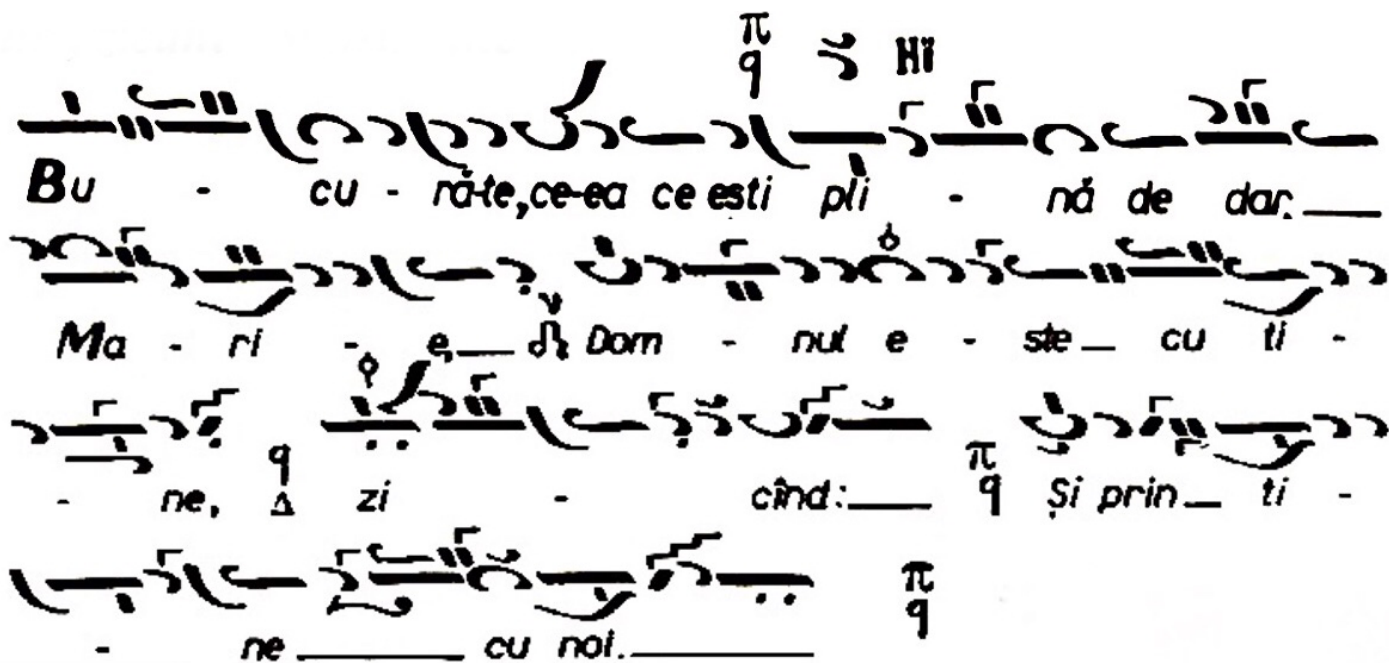 π q Нї
Bu - cu - ră-te, ce-ea ce esti pli - nă de dar.
Ma - ri - e, Dom - nul e - ste cu ti -
- ne, q Δ zi - cînd: π q Și prin ti -
- ne cu noi. π q